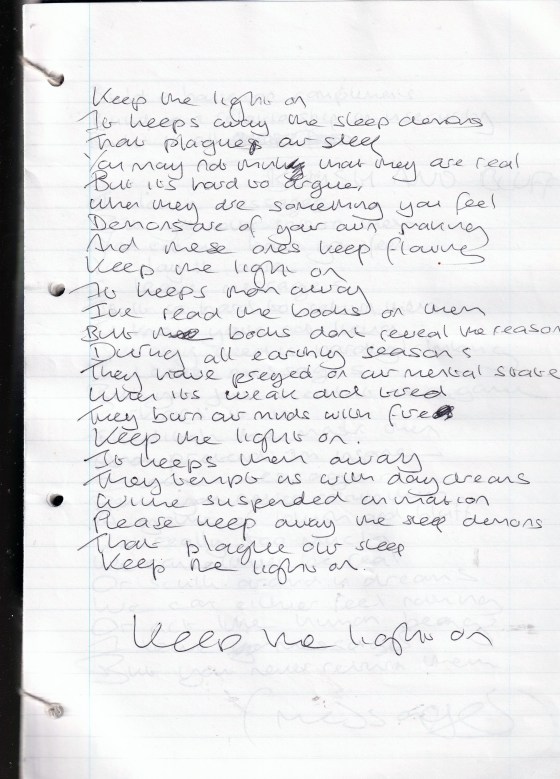 Keep the light on
It keeps away the sleep demons
That plagues our sleep
You may not think that they are real
But its hard to argue,
when they are something you feel
Demons are of your own making
And these ones keep flowing
Keep the light on
It keeps them away
I've read the books on them
But books dont reveal the reason
During all earthly seasons
They have preyed on our mental state
When its weak and tired
They burn our minds with fire
Keep the light on.
It keeps them away
They tempt us with daydreams
While suspended animation
Please keep away the sleep demons
That plague our sleep
Keep the light on.
Keep the light on